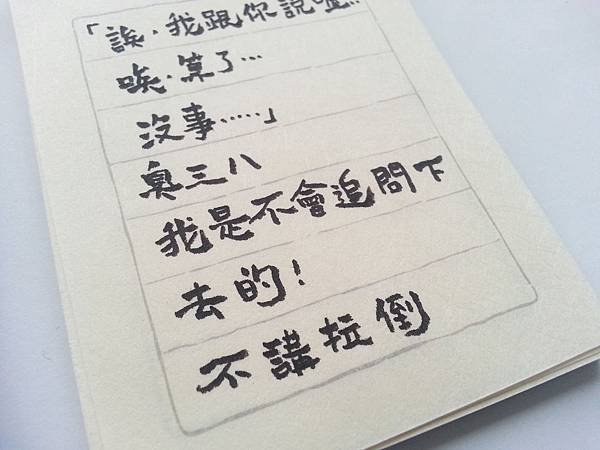 「誒．我跟你說喔…
唉．算了…
沒事……」
臭三八
我是不會追問下
去的！
不講拉倒